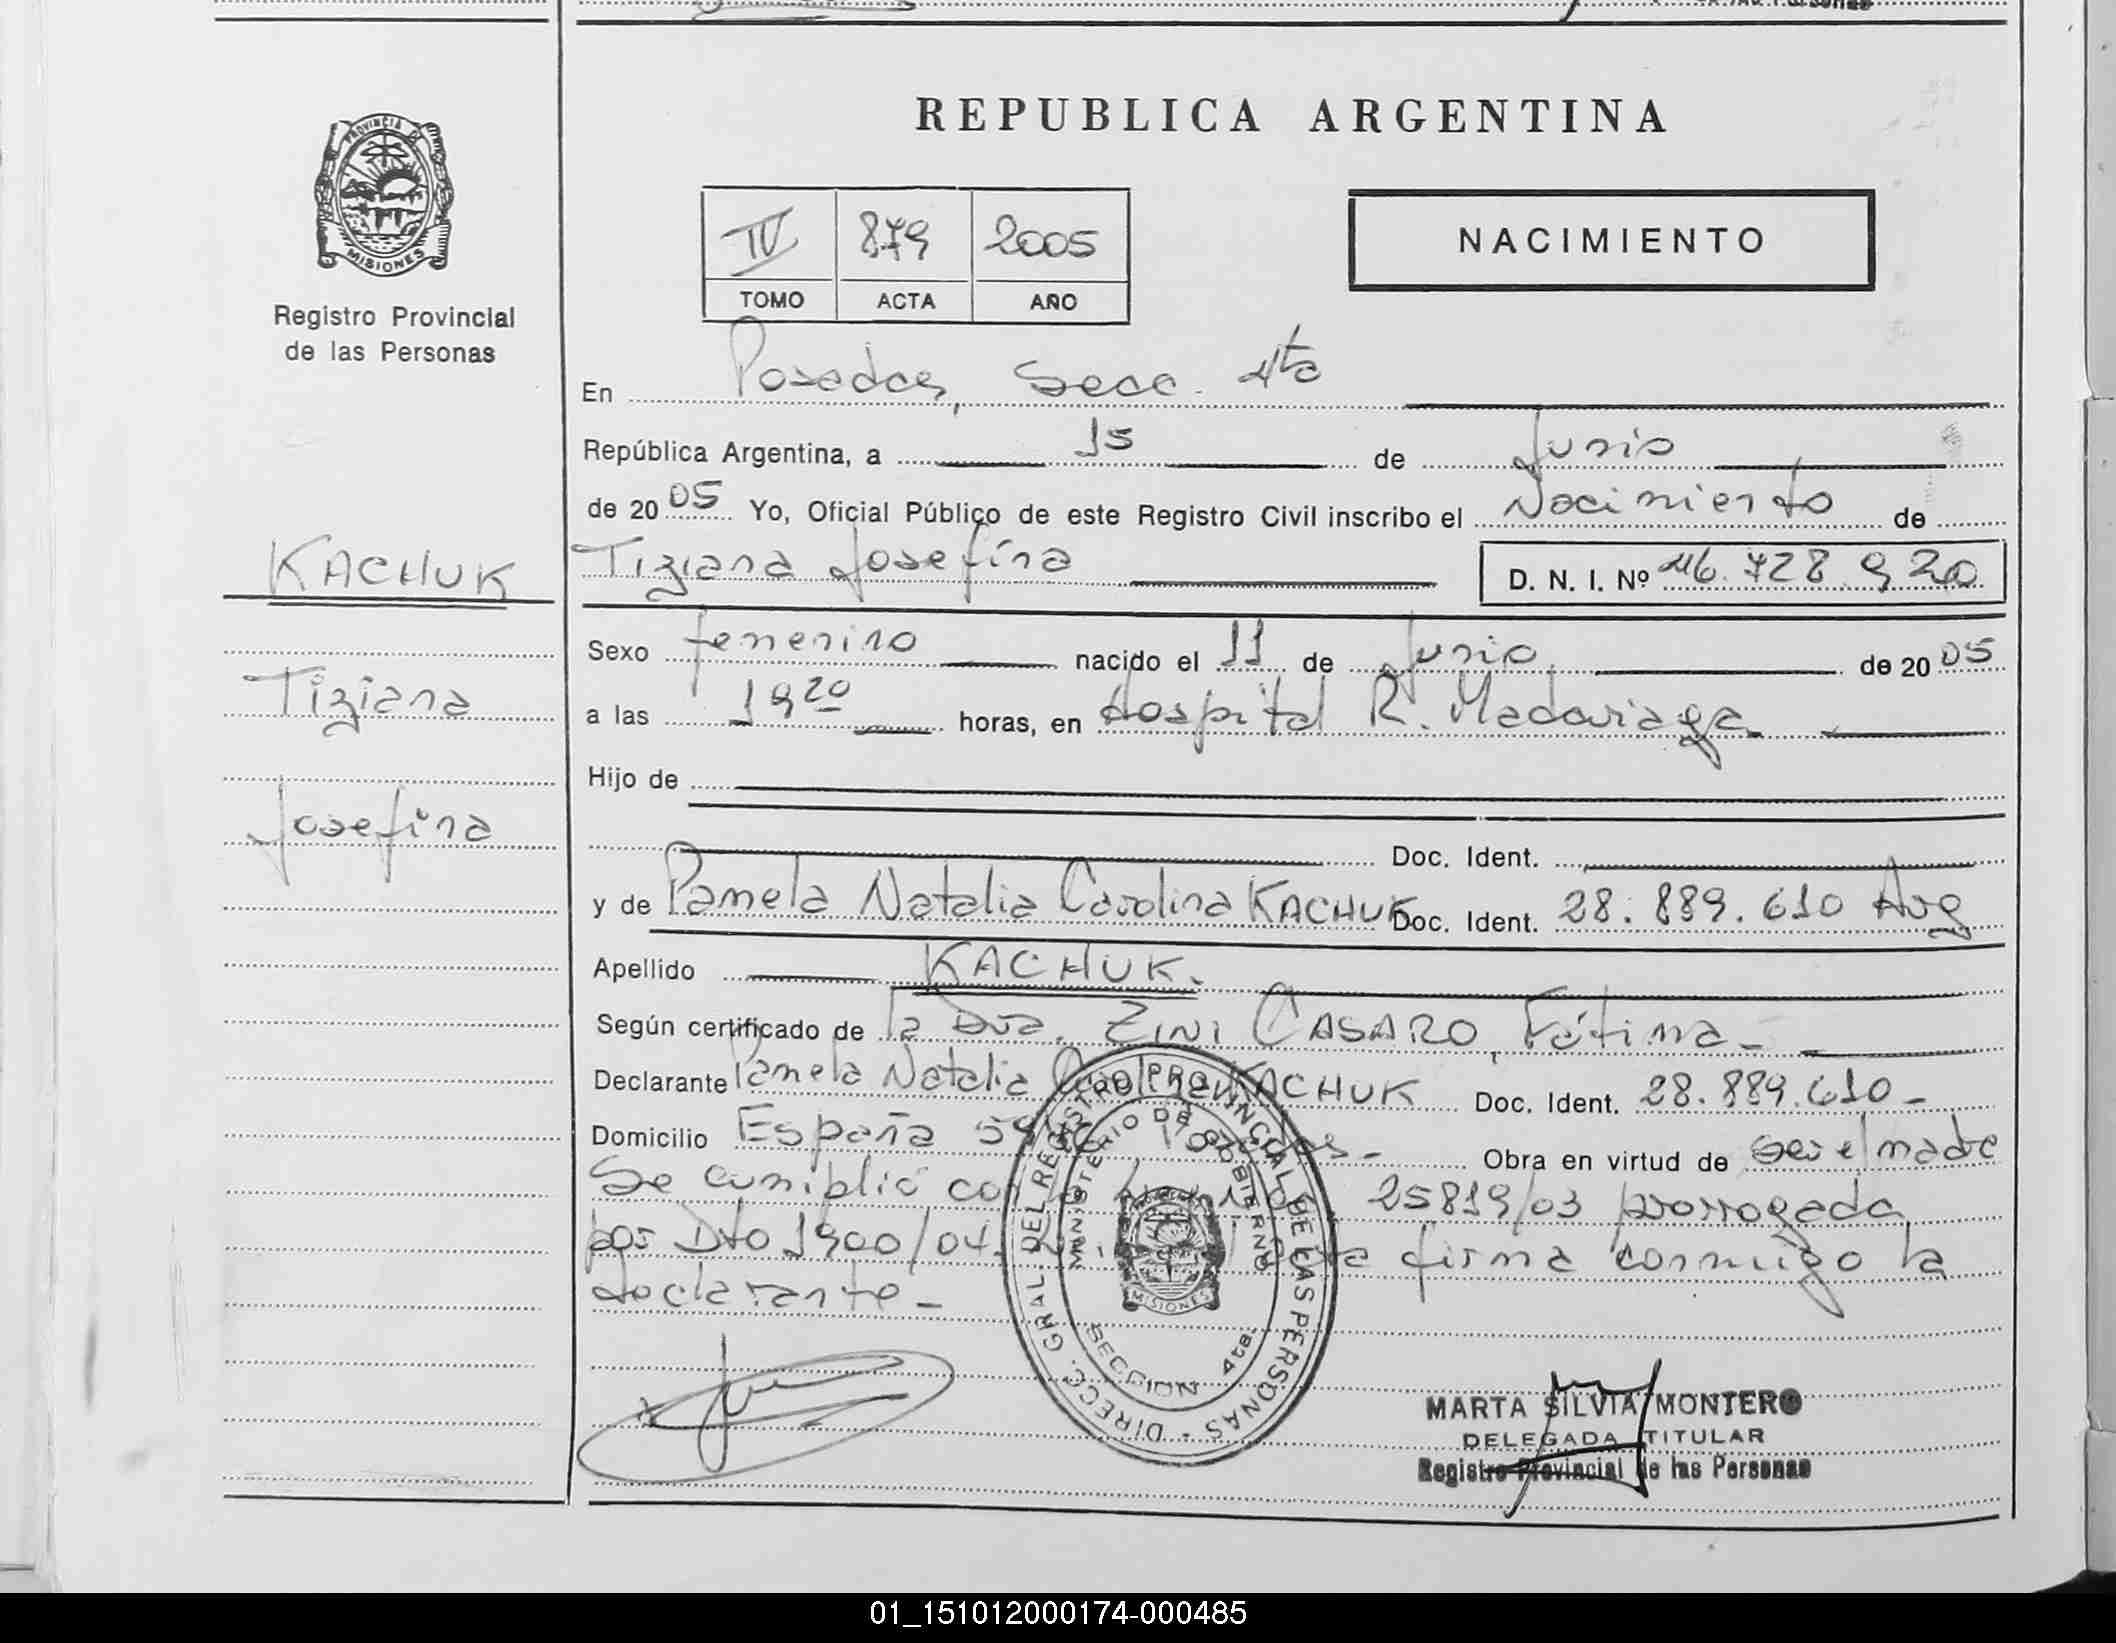 REPUBLICA ARGENTINA
PROVINCIA DE
MISIONES
Registro Provincial
de las Personas
IV 879 2005
TOMO ACTA AÑO
NACIMIENTO
En Posadas, Secc. 4ta
República Argentina, a 15 de Junio
de 2005 Yo, Oficial Público de este Registro Civil inscribo el Nacimiento de
KACHUK
Tiziana Josefina D. N. I. Nº 46.728.920
Sexo femenino nacido el 11 de Junio de 2005
Tiziana
a las 19 20 horas, en Hospital R. Madariaga
Hijo de
Josefina
Doc. Ident.
y de Pamela Natalia Carolina KACHUK Doc. Ident. 28.889.610 Arg
Apellido KACHUK.
Según certificado de la Dra. ZINI CASARO, Fátima
Declarante Pamela Natalia Carolina KACHUK Doc. Ident. 28.889.610
Domicilio España Posadas Obra en virtud de ser el madre
Se cumplió con la 25819/03 prorrogada
por Dto 1900/04. firma conmigo la
declarante
DIRECC. GRAL. DEL REGISTRO PROVINCIAL DE LAS PERSONAS
MINISTERIO DE GOBIERNO
MISIONES
SECCION 4ta.
MARTA SILVIA MONTERO
DELEGADA TITULAR
Registro Provincial de las Personas
01_151012000174-000485